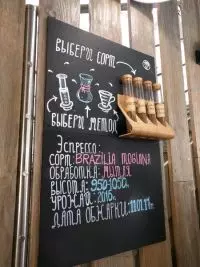 ВЫБЕРИ СОРТ
ВЫБЕРИ МЕТОД
ЭСПРЕССО:
СОРТ: BRAZILIA MOGIANA
ОБРАБОТКА: МЫТАЯ
ВЫСОТА: 950-1050м.
УРОЖАЙ: 2016г.
ДАТА ОБЖАРКИ: 11.01.17г.